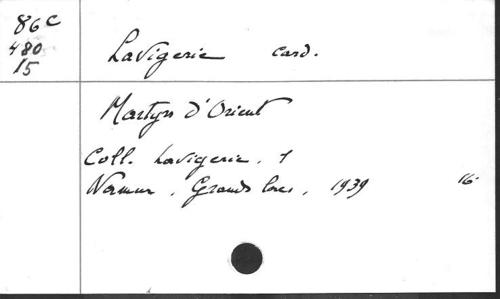 86C
480
15
Lavigerie card.
Martyrs d'Orient
Coll. Lavigerie, 1
Namur, Grands lacs, 1939 16